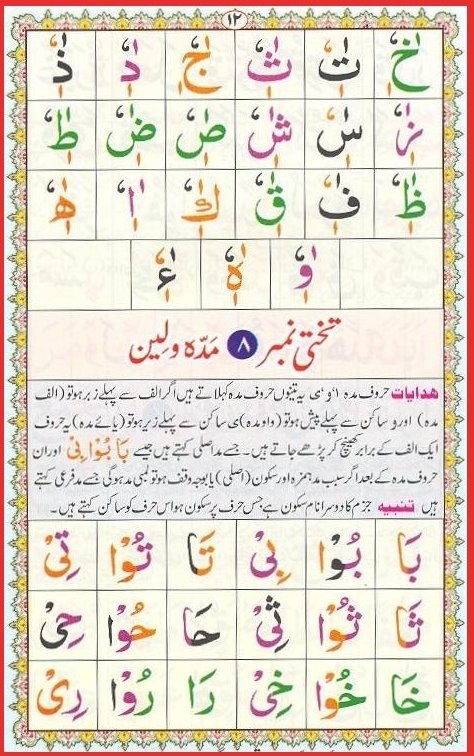 ١٢
خٰٖٗ تٰٖٗ ثٰٖٗ جٰٖٗ دٰٖٗ ذٰٖٗ
زٰٖٗ سٰٖٗ شٰٖٗ صٰٖٗ ضٰٖٗ طٰٖٗ
ظٰٖٗ فٰٖٗ قٰٖٗ كٰٖٗ اٰٖٗ ھٰٖٗ
وٰٖٗ ہٰٖٗ ءٰٖٗ
تختی نمبر ۸ مَدّہ و لِین
ھدایات حروف مدہ ا ’ و ’ ی یہ تینوں حروف مدہ کہلاتے ہیں اگر الف سے پہلے زبر ہو تو (الف
مدہ) اور و ساکن سے پہلے پیش ہو تو (واو مدہ) ی ساکن سے پہلے زیر ہو تو (یائے مدہ) یہ حروف
ایک الف کے برابر کھینچ کر پڑھے جاتے ہیں۔ جسے مد اصلی کہتے ہیں جیسے بَا بُوْا بِیْ اور ان
حروف مدہ کے بعد اگر سبب مد ہمزہ اور سکون (اصلی) یا بوجہ وقف ہو تو لمبی مد ہو گی جسے مد فرعی کہتے
ہیں تنبیہ جزم کا دوسرا نام سکون ہے جس حرف پر سکون ہو اس حرف کو ساکن کہتے ہیں۔
بَا بُوْا بِیْ تَا تُوْا تِیْ
ثَا ثُوْا ثِیْ حَا حُوْا حِیْ
خَا خُوْا خِیْ رَا رُوْا رِیْ